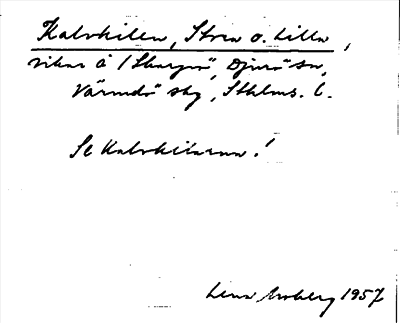 Kalvkilen, Stora o. Lilla,
vikar å /Skarpö, Djurö sn,
Värmdö skg, Sthlms. l.
Se Kalvkilarna!
Lena Moberg 1957